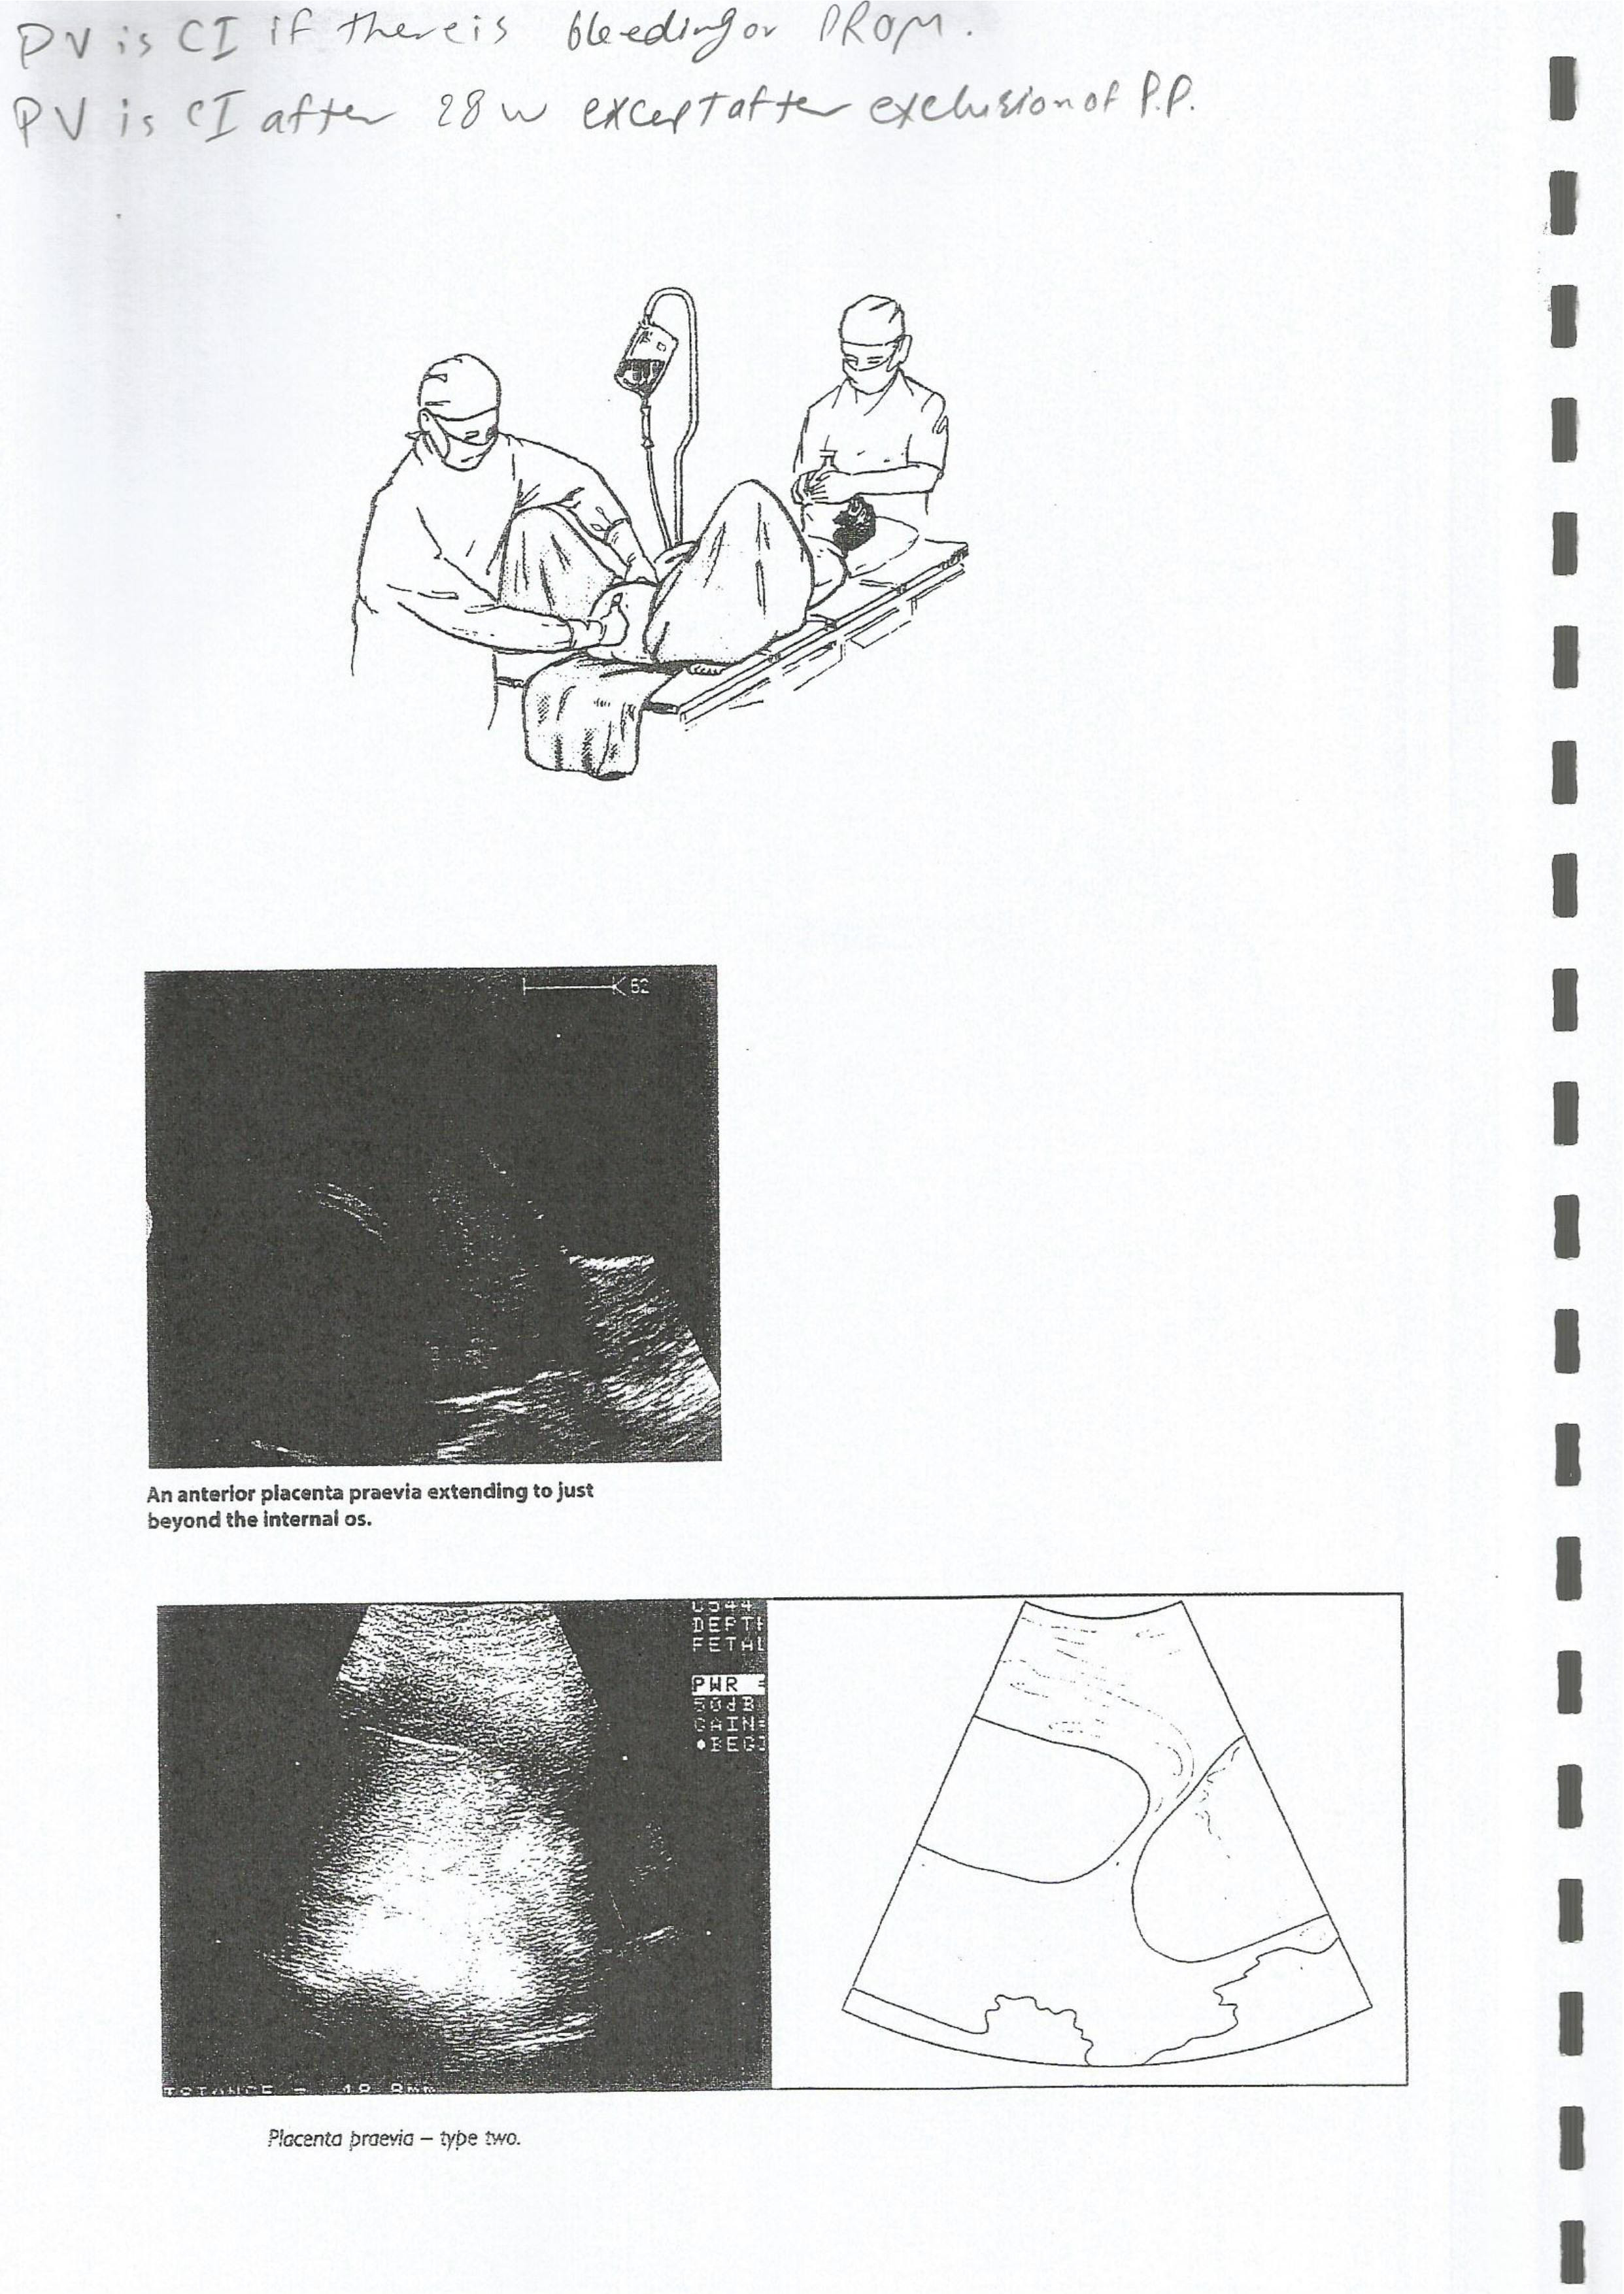 PV is CI if there is bleeding or PROM.
PV is CI after 28 w except after exclusion of P.P.
62
An anterior placenta praevia extending to just
beyond the internal os.
DEPTH
FETAL
PWR =
50dB
GAIN=
Placenta praevia – type two.